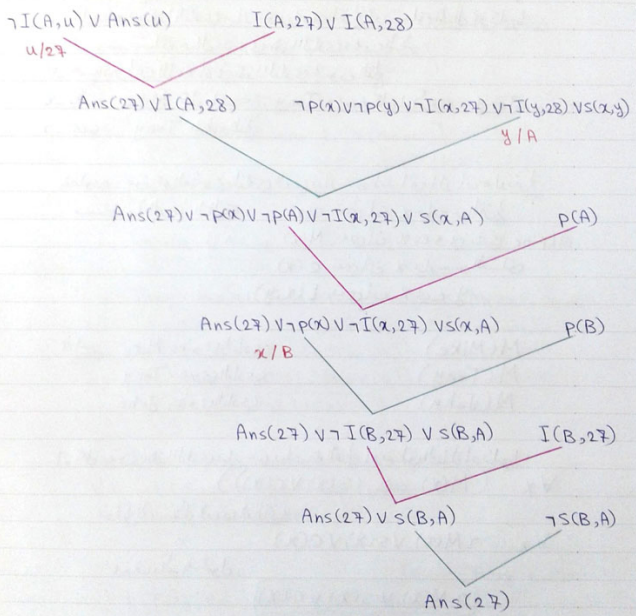 ¬I(A,u) ∨ Ans(u) I(A,27) ∨ I(A,28)
u/27
Ans(27) ∨ I(A,28) ¬p(x) ∨ ¬p(y) ∨ ¬I(x,27) ∨ ¬I(y,28) ∨ S(x,y)
y/A
Ans(27) ∨ ¬p(x) ∨ ¬p(A) ∨ ¬I(x,27) ∨ S(x,A) p(A)
Ans(27) ∨ ¬p(x) ∨ ¬I(x,27) ∨ S(x,A) p(B)
x/B
Ans(27) ∨ ¬I(B,27) ∨ S(B,A) I(B,27)
Ans(27) ∨ S(B,A) ¬S(B,A)
Ans(27)